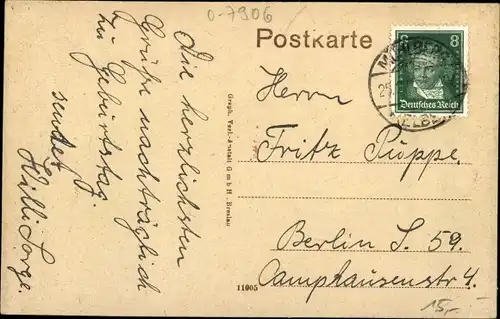 0-7906
Postkarte
8 8
Deutsches Reich
Die herzlichsten
Grüße nachträglich
zu Geburtstag.
sendet
Willi Sorge.
Graph. Verl.-Anstalt G m b H. Breslau
11005
Herrn
Fritz Püppe,
Berlin S. 59.
Camphausenstr 4.
15,-